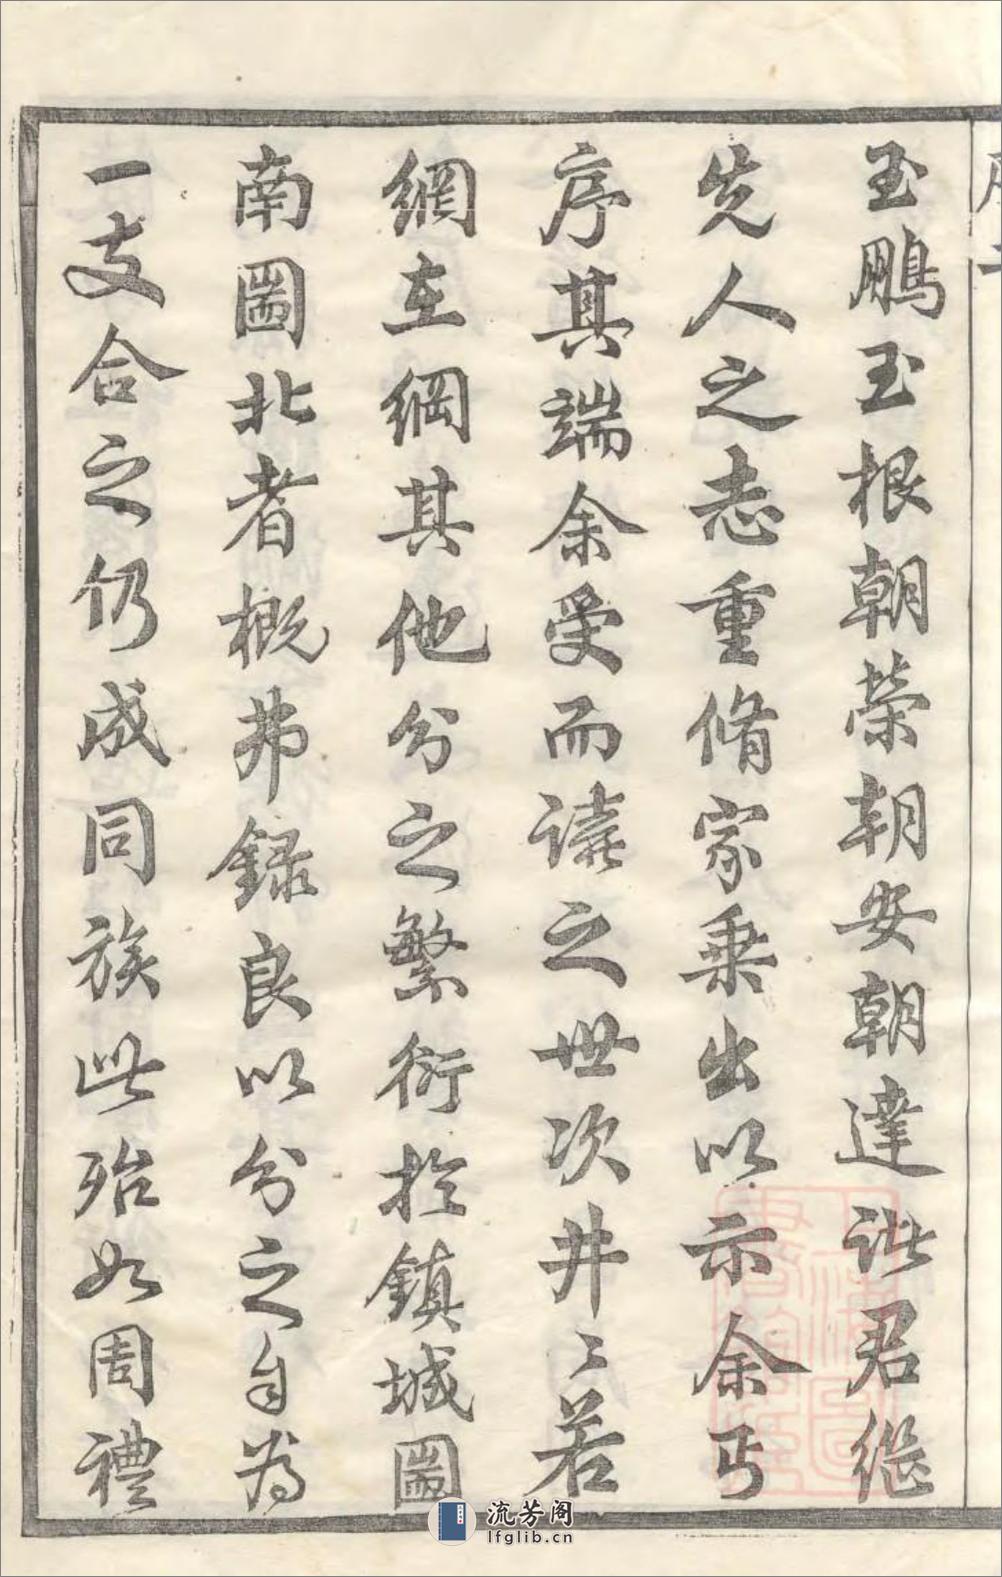 玉鵬玉根朝榮朝安朝達諸君繼
先人之志重脩家乘出以示余丐
序其端余受而讀之世次井〻若
網在綱其他分之繁衍於鎮城圖
南圖北者概弗錄良以分之自為
一支合之仍成同族此殆如周禮
流芳阁
lfglib.cn